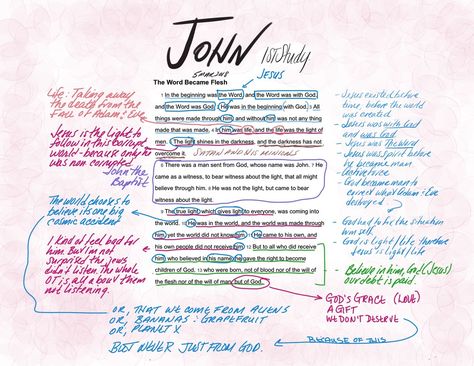 JOHN 1st Study
5MAR2018
The Word Became Flesh
JESUS
1 In the beginning was the Word, and the Word was with God,
and the Word was God. 2 He was in the beginning with God. 3 All
things were made through him, and without him was not any thing
made that was made. 4 In him was life, and the life was the light of
men. 5 The light shines in the darkness, and the darkness has not
overcome it.
SATAN AND HIS MINIONS
6 There was a man sent from God, whose name was John. 7 He
came as a witness, to bear witness about the light, that all might
believe through him. 8 He was not the light, but came to bear
witness about the light.
9 The true light, which gives light to everyone, was coming
into the world. 10 He was in the world, and the world was made through
him, yet the world did not know him. 11 He came to his own, and
his own people did not receive him. 12 But to all who did receive
him, who believed in his name, he gave the right to become
children of God, 13 who were born, not of blood nor of the will of
the flesh nor of the will of man, but of God.
Life: Taking away
the death from the
Fall of Adam & Eve
Jesus is the light to
follow in this corrupt
world - because only he
was non corrupt
John the
Baptist
The world chooses to
believe its one big
cosmic accident
I kind of feel bad for
them. But I'm not
surprised the jews
didn't listen. The whole
OT is all about them
not listening.
OR, THAT WE COME FROM ALIENS
OR, BANANAS & GRAPEFRUIT
OR, PLANET X
BUT NEVER JUST FROM GOD.
- Jesus existed before
time, before the world
was created
- Jesus was with God
and was God
- Jesus was The Word
- Jesus was spirit before
he became man
- God became man to
correct what Adam & Eve
destroyed
- God had to fix the situation
himself.
- God is light/life therefore
Jesus is light/life
- Believe in him, God (Jesus)
our debt is paid.
GOD'S GRACE (LOVE)
A GIFT
WE DON'T DESERVE
BECAUSE OF THIS